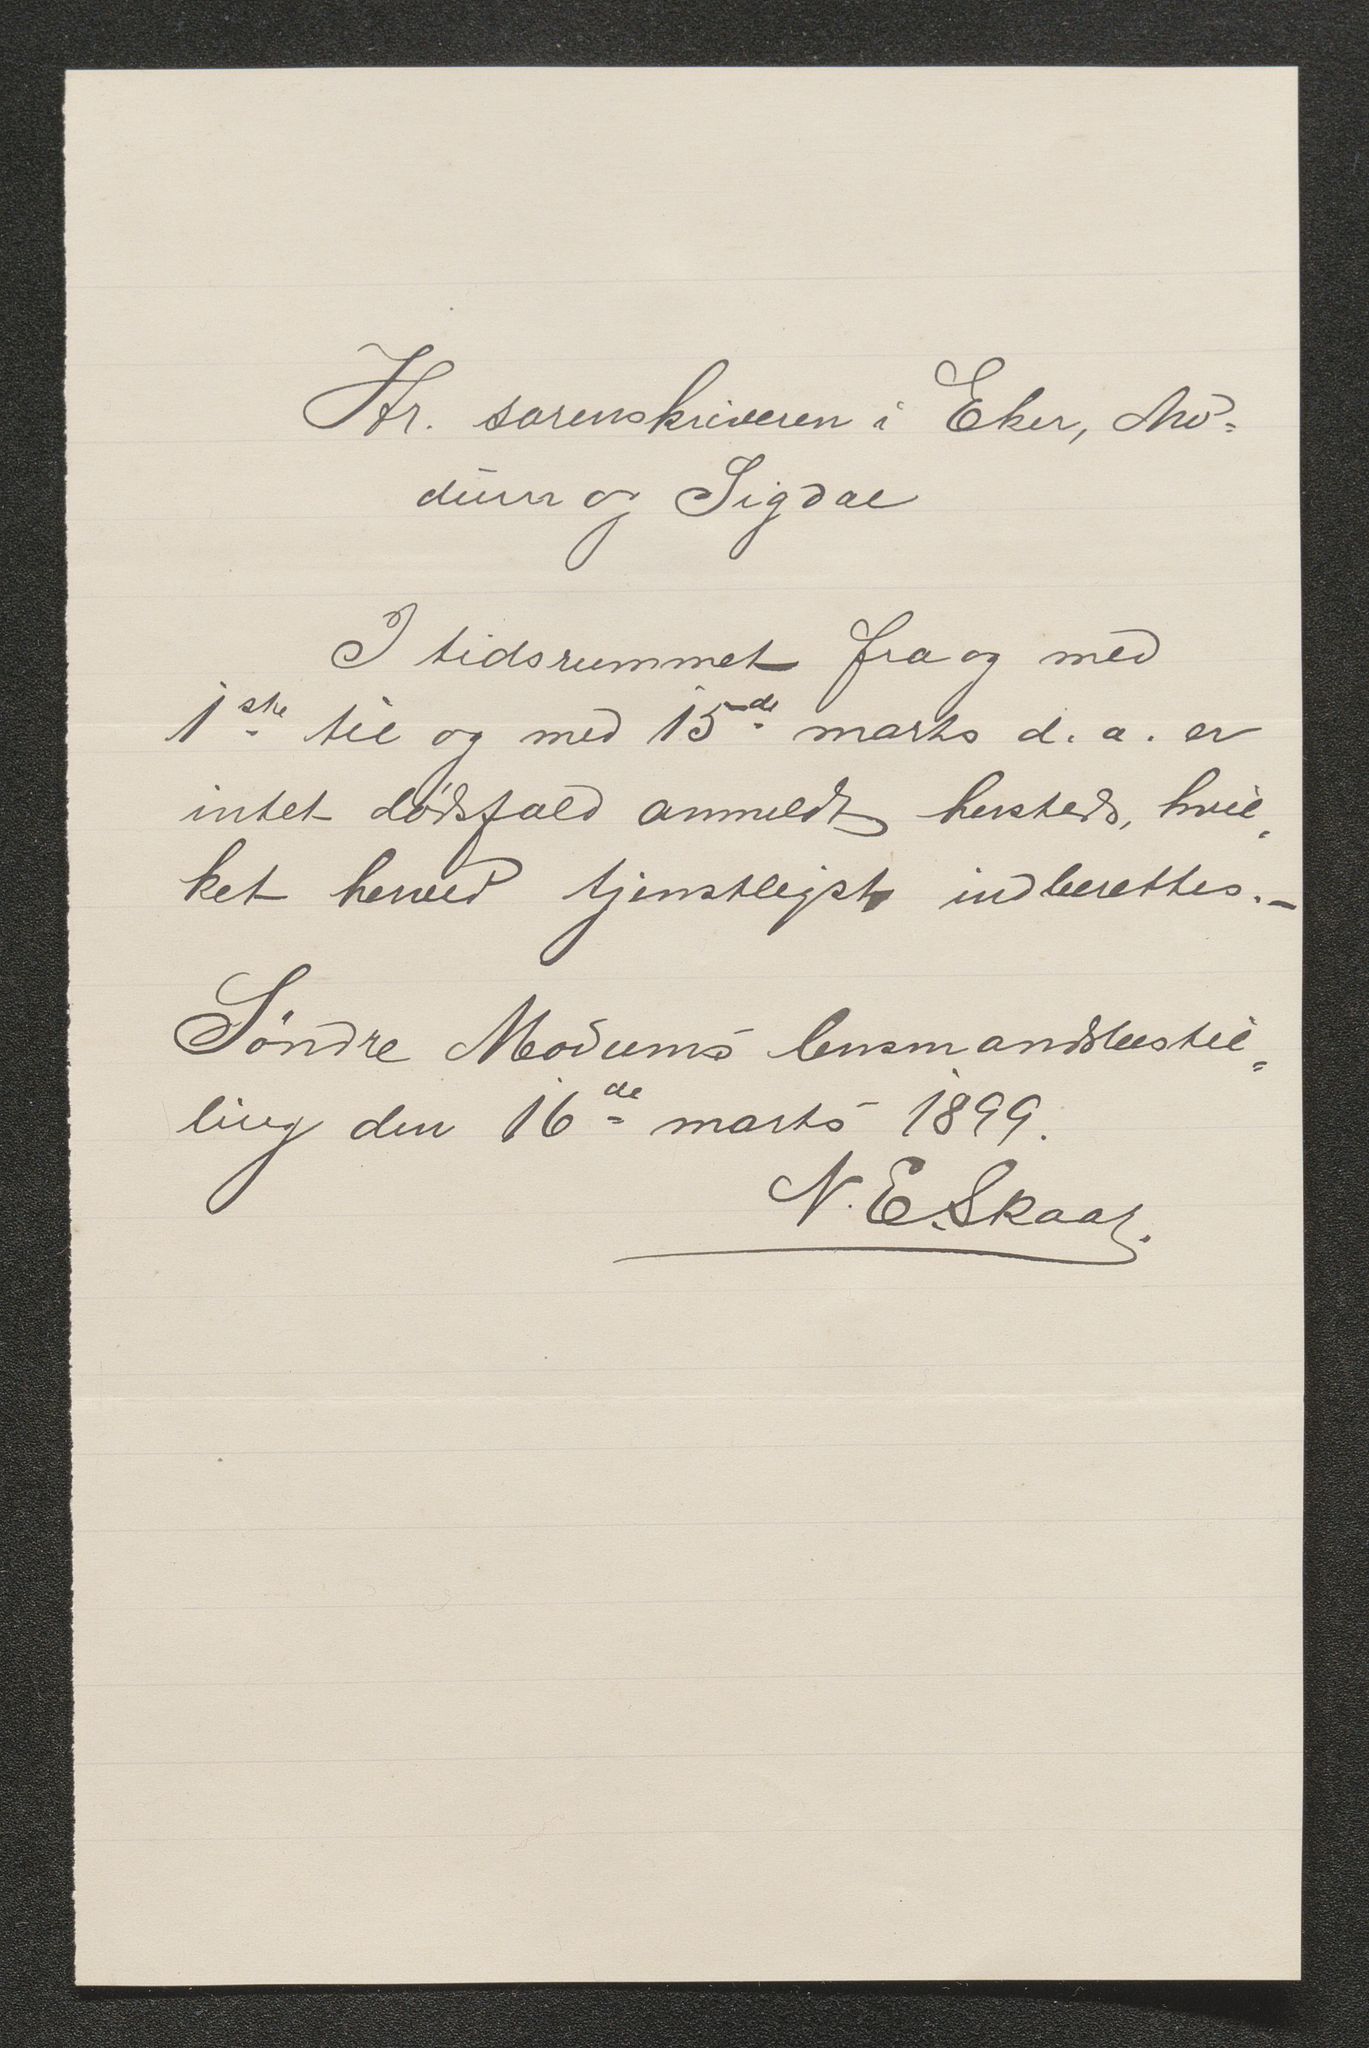 Hr. sorenskriveren i Eker, Mo=
dum og Sigdal
I tidsrummet fra og med
1ste til og med 15de marts d. a. er
intet dødsfald anmeldt hersteds, hvil=
ket herved tjenstligst indberettes.-
Søndre Modums lensmandsbestil=
ling den 16de marts 1899.
N. E. Skaaz.